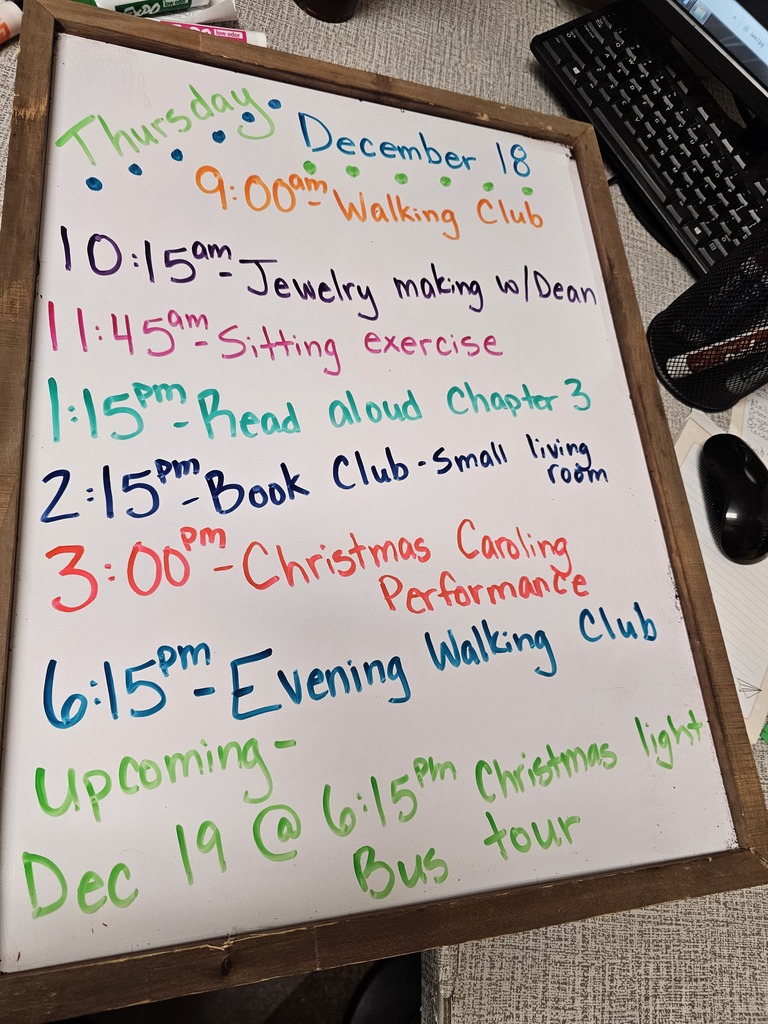 low odor
Thursday December 18
9:00am - Walking Club
10:15am - Jewelry making w/Dean
11:45am - Sitting exercise
1:15pm - Read aloud Chapter 3
2:15pm - Book Club - Small living room
3:00pm - Christmas Caroling
Performance
6:15pm - Evening Walking Club
Upcoming -
Dec 19 @ 6:15pm Christmas light
Bus tour